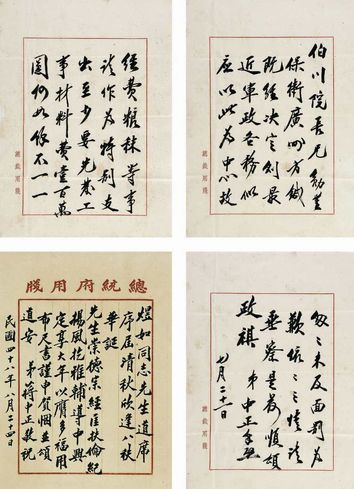 伯川院長兄勛鑒
保衛廣州方針
既經決定則最
近軍政各務似
應以此為中心故
總裁用箋
經費糧秣等事
請作為特別支
出至少要先發工
事材料費壹百萬
圓何如餘不一一
總裁用箋
匆匆未及面別為
歉依依之情諒
垂察是荷順頌
政祺 弟中正手啟
七月二十一日
總裁用箋
總統府用牋
煜如同志先生道席
序屆清秋欣逢八秩
華誕
先生崇德宗經匡扶倫紀
揚風扢雅輔導中興
定享大年以膺多福用
布尺書謹申賀悃並頌
道安 弟蔣中正敬祝
民國四十八年八月二十四日